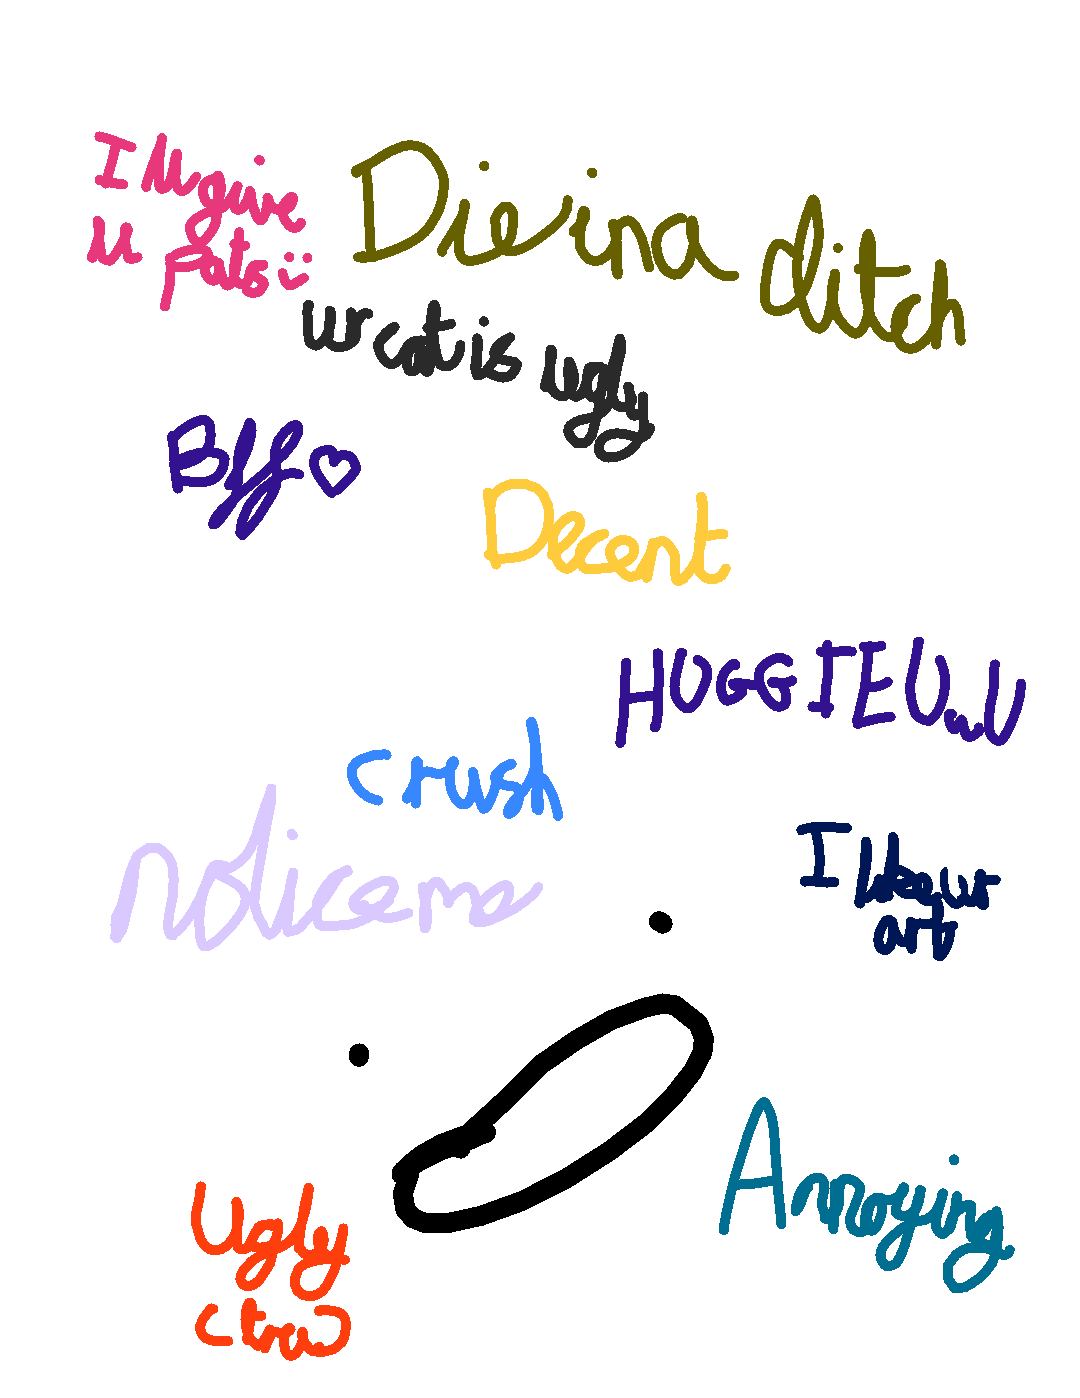 I'll give
u pats :)
Die in a ditch
ur cat is ugly
Bff ♡
Decent
HUGGIE UwU
crush
notice me
I like ur
art
Ugly
(tru)
Annoying